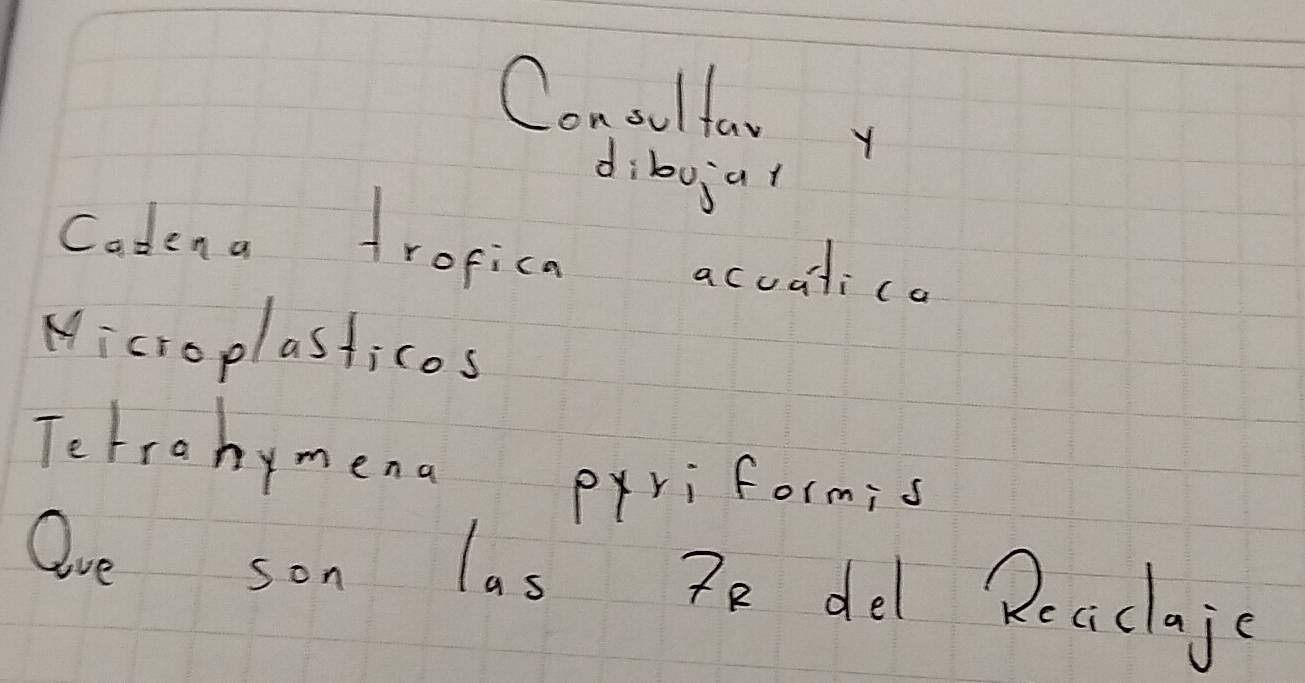 Consultar y
dibujar
Cadena trofica acuática
Microplasticos
Tetrahymena pyriformis
Que son las 7R del Reciclaje